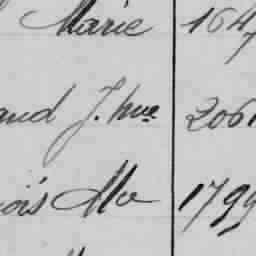 Marie 164
and J. hue 206
ois Mce 1799